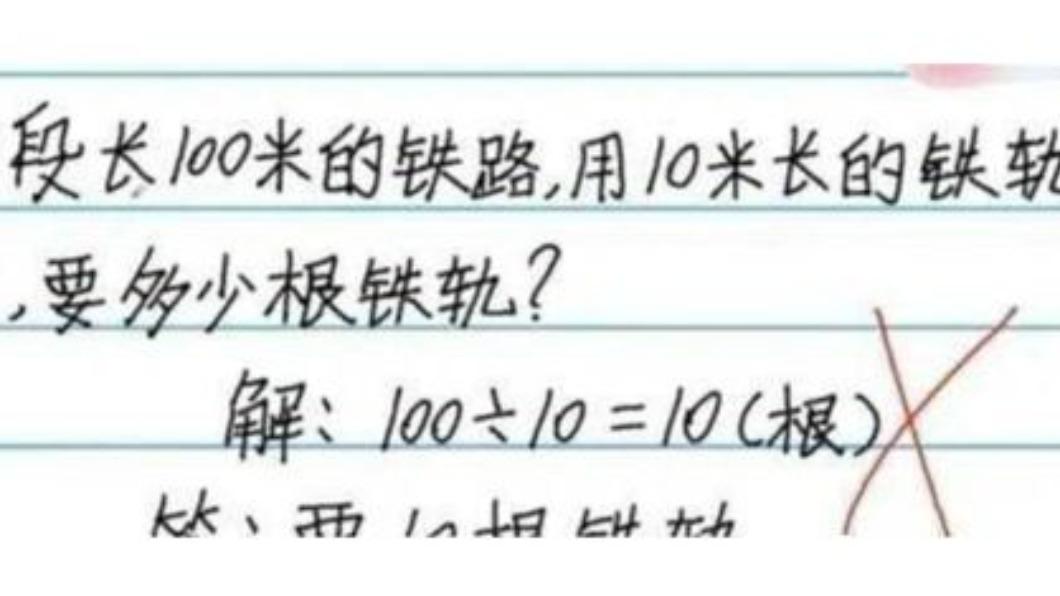 段长100米的铁路,用10米长的铁轨
,要多少根铁轨?
解: 100÷10=10(根)
答:要10根铁轨